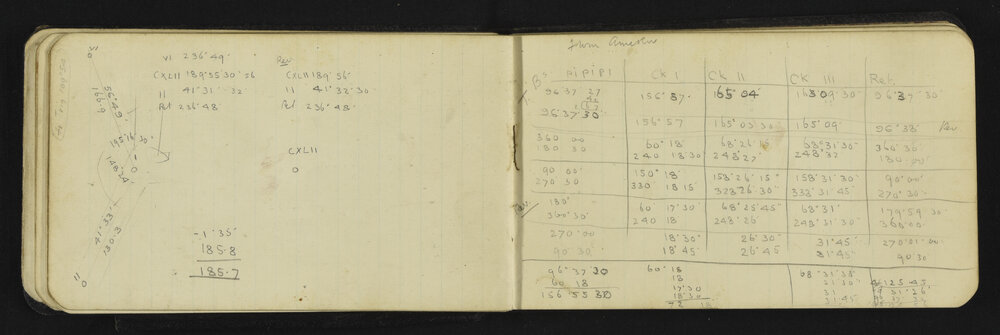 VI 236°49'
Rev
CXLII 189°55'30" 56
CXLII 189°56'
II 41°31' 32
II 41°32'30
Ret 236°48'
Ret 236°48'
VI
0
56°49
166.9
192°16'30
0
148.24
CXLII
0
41°33'
130.3
II
0
-1°35'
185.8
185.7
from
Bs pipipi CK I CK II CK III Ret
96°37' 27 156°37' 165°04' 165°09'30" 96°37'30
96°37'30 156°57 165°05'30" 165°09' 96°38' Rev
360 00 60°18' 68°26'15 68°31'30" 360°30'
180 30 240 18'30 248°27' 248°32 180°00'
90 00' 150°18' 158°26'15" 158°31'30 90°00'
270 30 330 18'15 338°26'30" 338°31'45" 270°30'
Rev 180° 60 17'30 68°25'45" 68°31' 179°59'30
360°30' 240 18 248°26' 248°31'30" 360°00
270°00 18'30" 26'30 31'45" 270°01'00
90 30' 18'45 26'45 31'45" 90°30
96°37'30 60°18 68°31'30"
60 18 18 31'30"
156°55'30 17'30 31
18'30 31.45
72